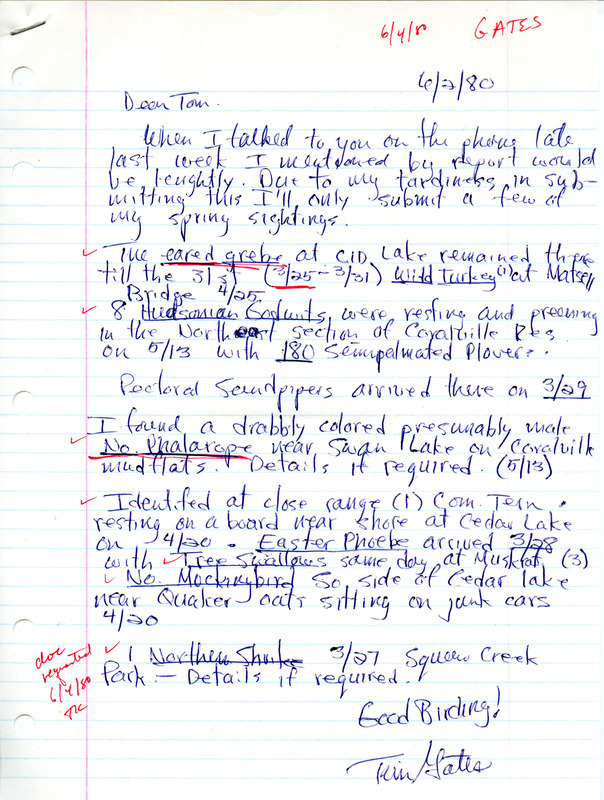 6/4/80 GATES
6/2/80
Dear Tom.
When I talked to you on the phone late
last week I mentioned by report would
be lenghtly. Due to my tardiness in sub-
mitting this I'll only submit a few of
my spring sightings.
The eared grebe at CID Lake remained there
till the 31st (3/25-3/31) Wild Turkey (1) at Matsell
Bridge 4/25.
8 Hudsonian Godwits, were resting and preening
in the Northeast section of Coralville Res.
on 5/13 with 180 Semipalmated Plovers.
Pectoral Sandpipers arrived there on 3/29
I found a drabbly colored presumably male
No. Phalarope near Swan Lake on Coralville
mudflats. Details if required. (5/13)
Identifed at close range (1) Com. Tern.
resting on a board near shore at Cedar Lake
on 4/20. Easter Phoebe arrived 3/28
with Tree Swallows same day at Muskrat (3)
No. Mockingbird So. side of Cedar lake
near Quaker oats sitting on junk cars
4/20
1 Northern Shrike 3/27 Squaw Creek
Park. - Details if required.
doc
requested
6/4/80
TK
Good Birding!
Tim Gates